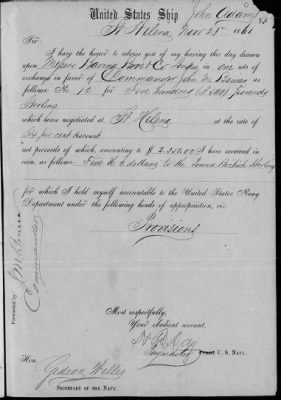 United States Ship John Adams
St Helena, Nov 25th 1861
Sir
I have the honor to advise you of my having this day drawn
upon Messrs Baring Bros & Co in one sets of
exchange in favor of Commander John M. Berrien as
follows: No. 12 for Five hundred pounds
Sterling
which were negotiated at St Helena at the rate of
Six per cent discount
net proceeds of which, amounting to $ I have received in
coin, as follows: Five dollars to the Pound British Sterling
for which I hold myself accountable to the United States Navy
Department under the following heads of appropriation, viz:
Provisions
Forwarded by
J M Berrien
Commander
Most respectfully,
Your obedient servant,
Paymaster U.S. Navy.
Hon.
Gideon Welles
Secretary of the Navy.